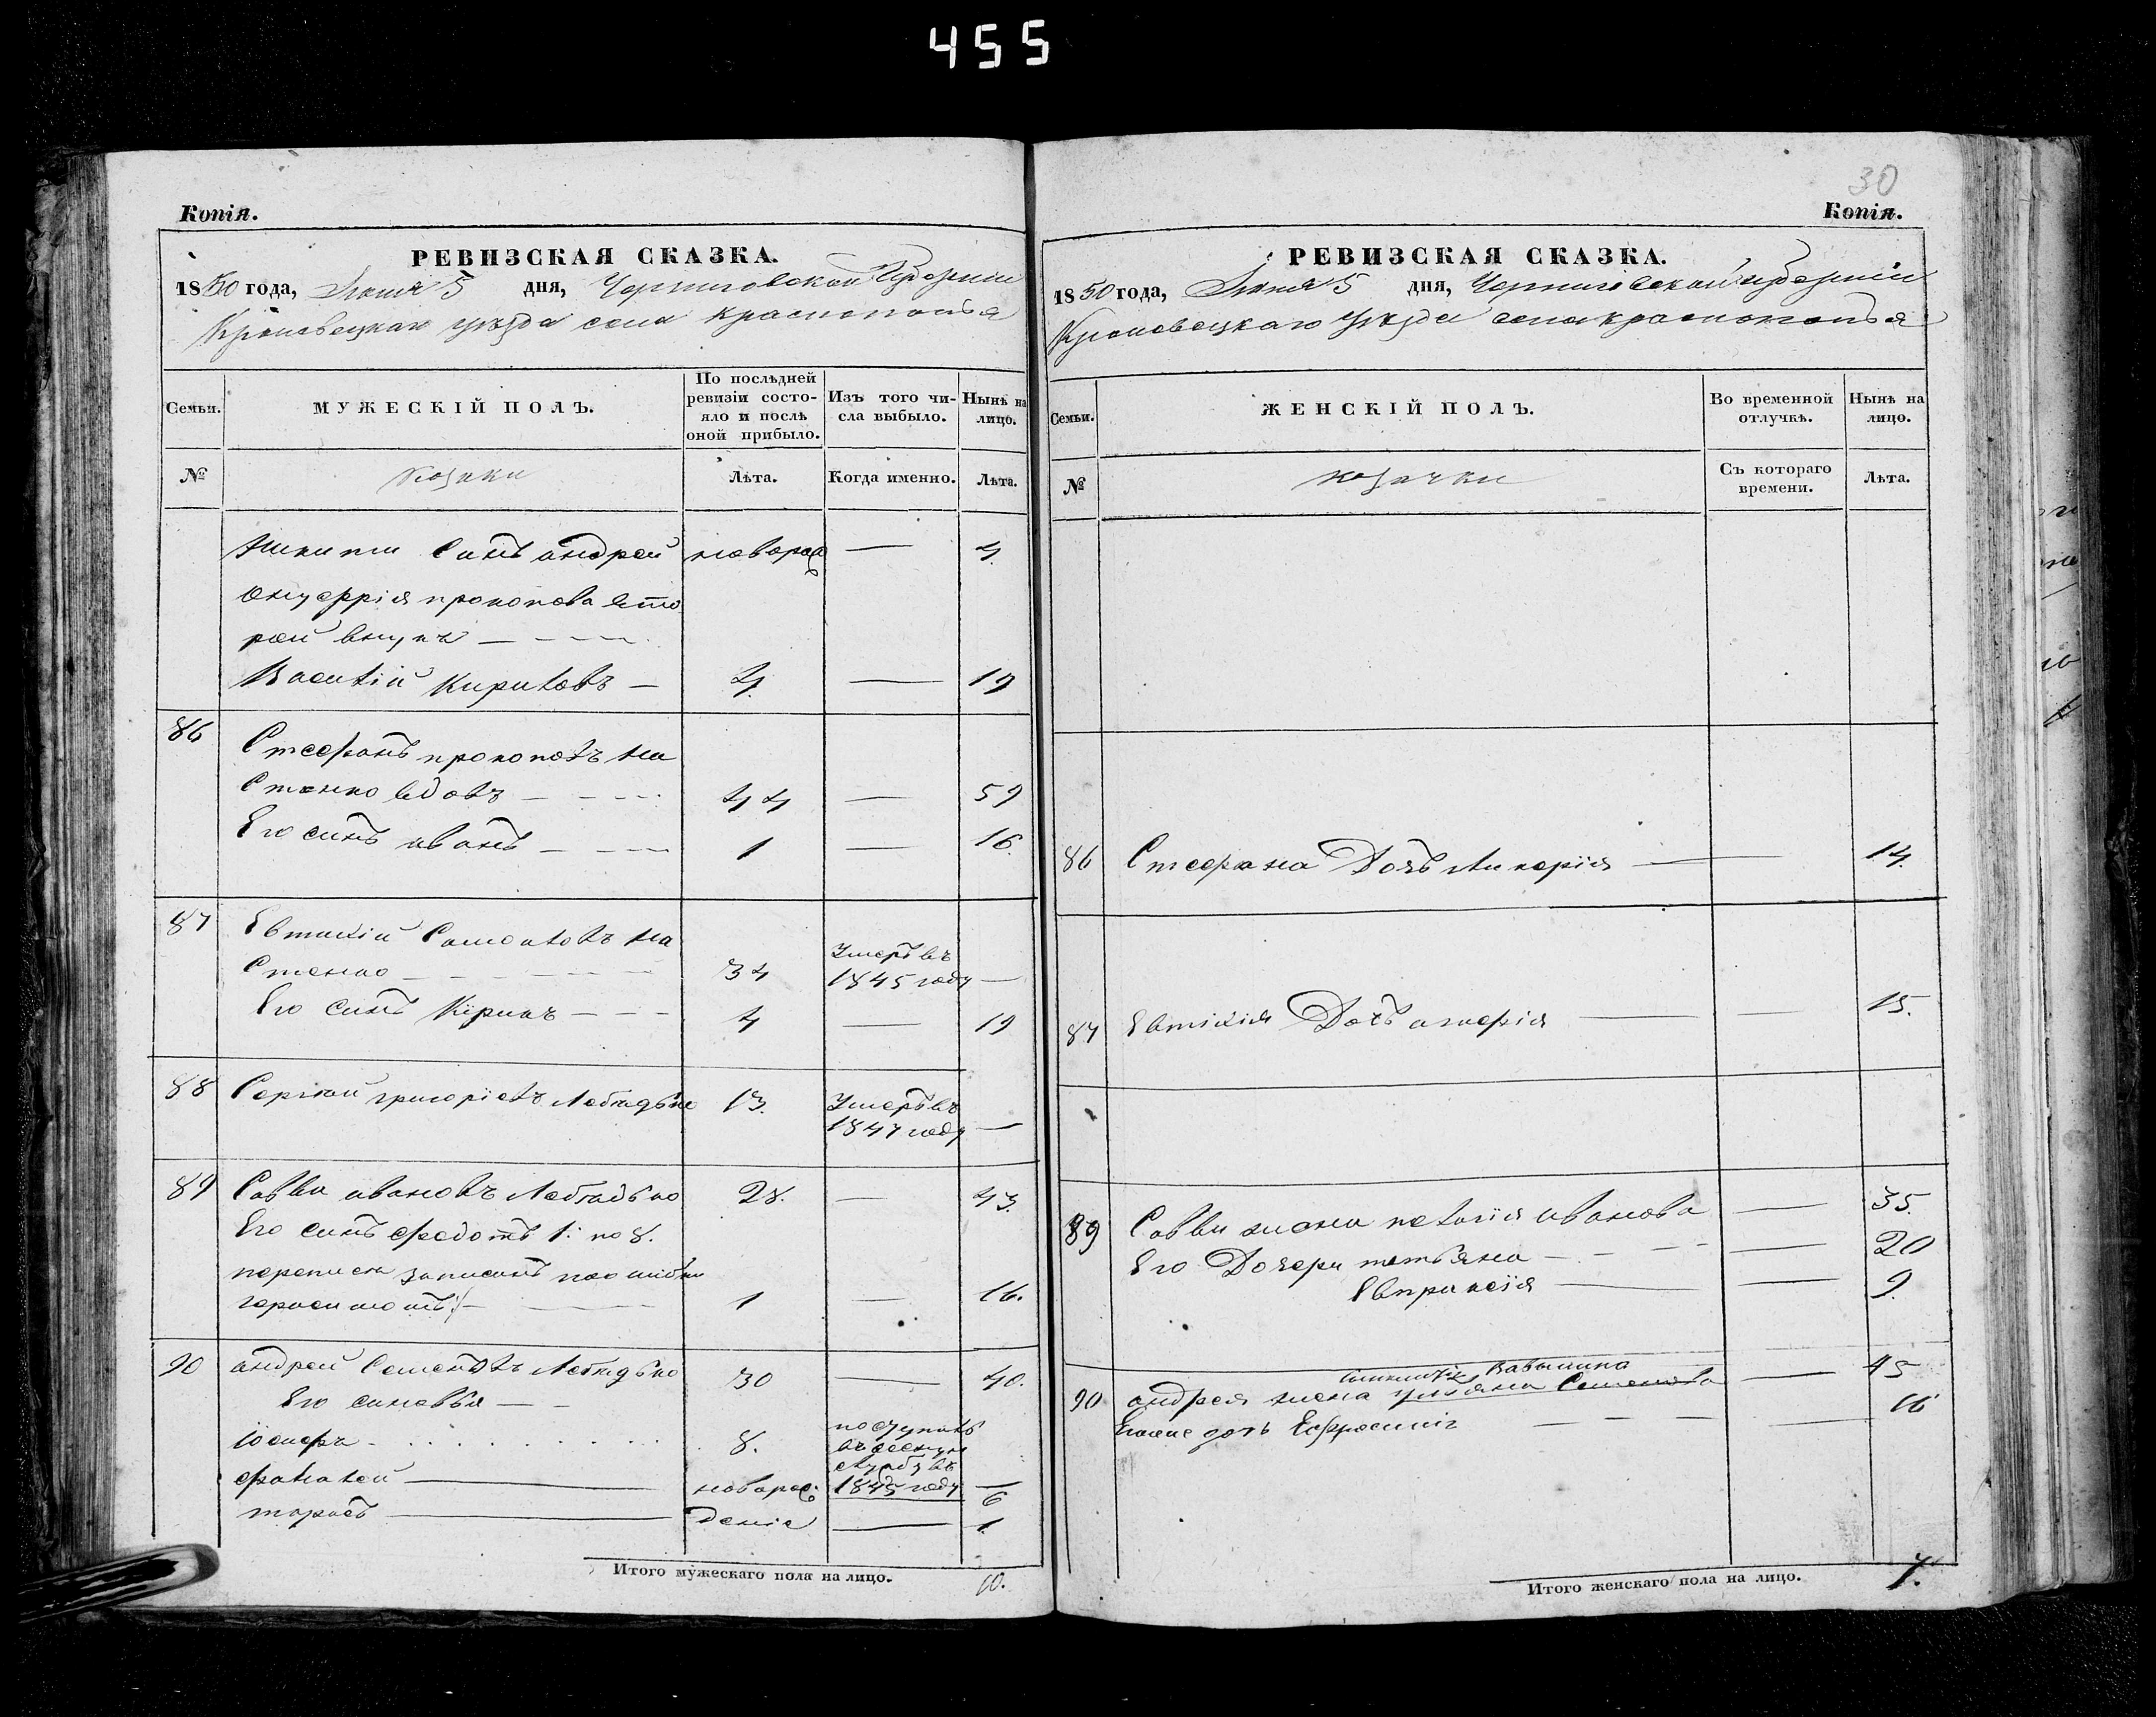 455
Копія.
РЕВИЗСКАЯ СКАЗКА.
1850 года, Іюня 5 дня, Черниговской Губерніи
Кролевецкаго уѣзда села Краснополья
Семьи.
МУЖЕСКІЙ ПОЛЪ.
По послѣдней ревизіи состояло и послѣ оной прибыло.
Изъ того числа выбыло.
Нынѣ на лицо.
№
козаки
Лѣта.
Когда именно.
Лѣта.
Никиты Синъ андрей новорож — 4
Онуфрія прокопова вто
рой внукъ —
Василій Кириловъ — 4 — 19
86 Стефанъ прокоповъ На
Стенко вдовъ — 44 — 59
Его синъ иванъ — 1 — 16.
87 Евтихій Самойловъ На
Стенко — 34 Умеръ въ 1845 году —
Его синъ Кірикъ — 4 — 19
88 Сергѣй григоріевъ 13. Умеръ въ 1847 году —
89 Савва ивановъ 28. — 43.
Его синъ федотъ 1: по 8.
переписи записанъ
герасимомъ:/ — 1 — 16.
90 андрей Семеновъ 30 — 40.
Его синовья —
Іосифъ 8. поступилъ въ службу въ 1845 году —
фалалей — новорож 6
тарасъ — денніе — 1
Итого мужескаго пола на лицо. 10.
30
Копія.
РЕВИЗСКАЯ СКАЗКА.
1850 года, Іюня 5 дня, Черниговской губерніи
Кролевецкаго уѣзда села краснополья
Семьи.
ЖЕНСКІЙ ПОЛЪ.
Во временной отлучкѣ.
Нынѣ на лицо.
№
козачки
Съ котораго времени.
Лѣта.
86 Стефана Дочь Ликерія — 14.
87 Евтихія Дочь — — 15.
89 Саввы жена пелагія иванова — 35.
Его Дочери татьяна — — 20
Евпраксія — — 9.
90 андрея жена Семенова — 45
дочь Ефросинія — — 16
Итого женскаго пола на лицо. 7.